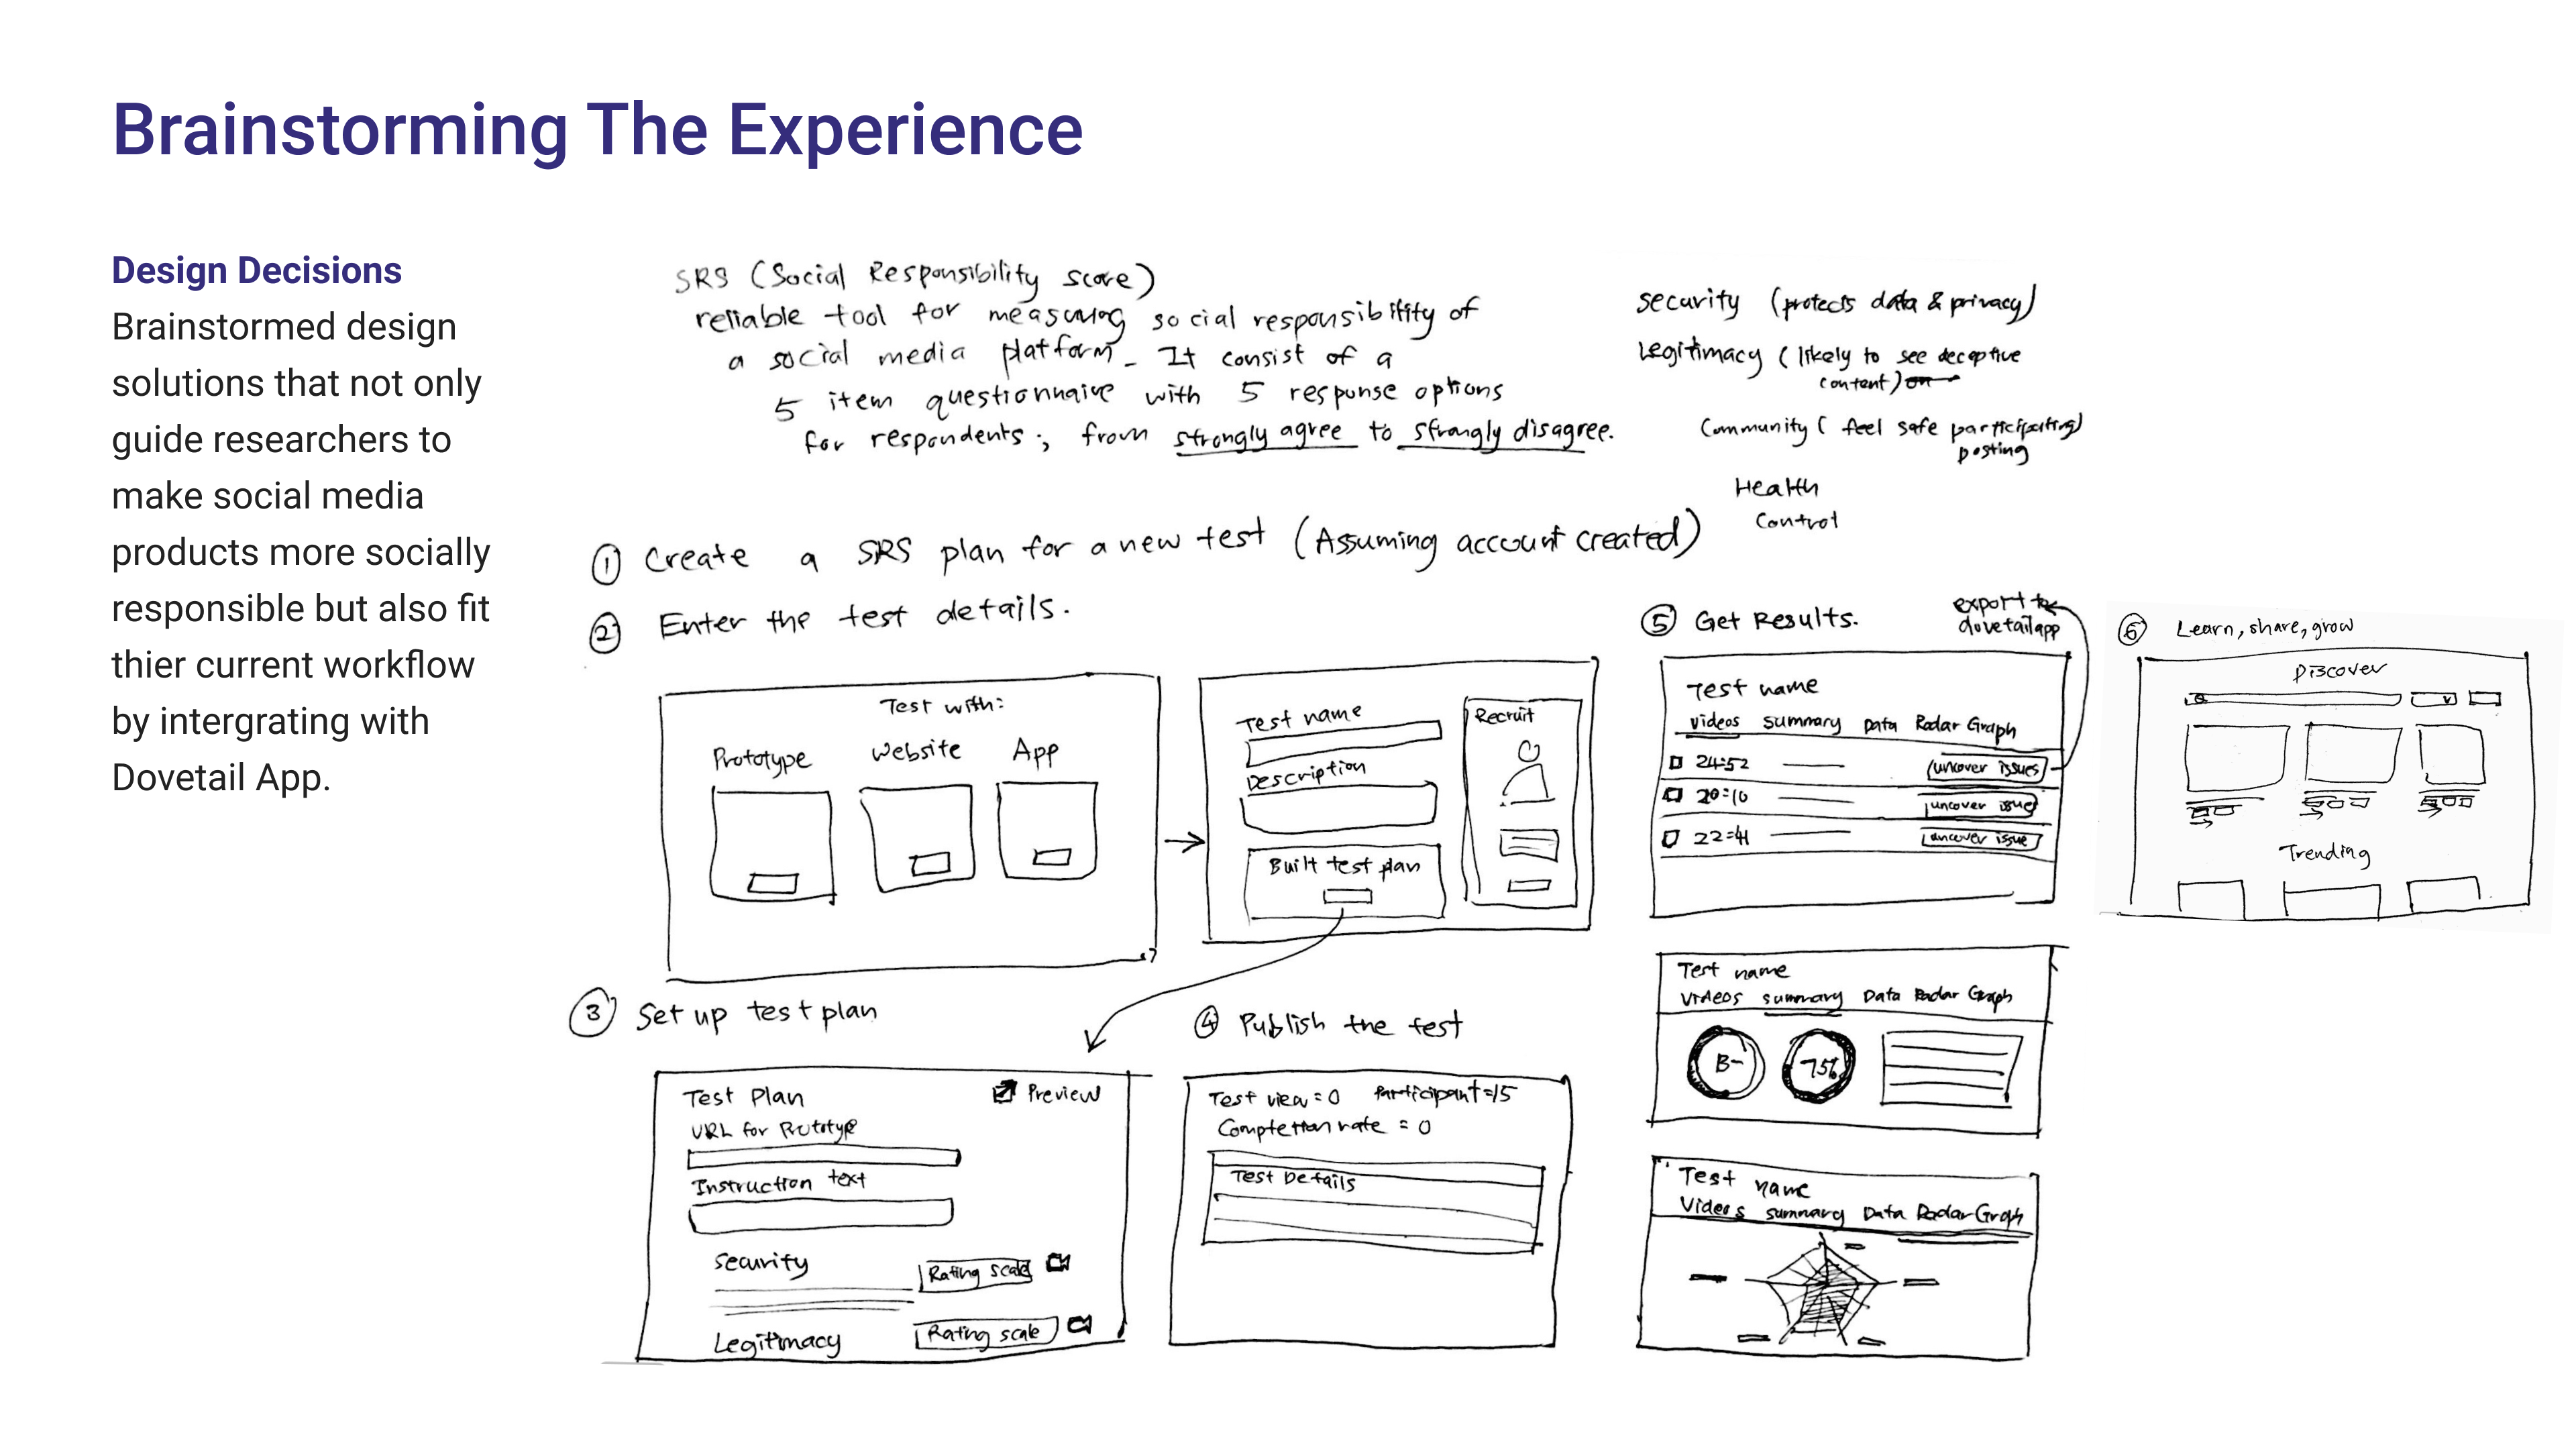 Brainstorming The Experience
Design Decisions
Brainstormed design
solutions that not only
guide researchers to
make social media
products more socially
responsible but also fit
thier current workflow
by intergrating with
Dovetail App.
SRS (Social Responsibility score)
reliable tool for measuring social responsibility of
a social media platform. It consist of a
5 item questionnaire with 5 response options
for respondents; from strongly agree to strongly disagree.
security (protects data & privacy)
Legitimacy (likely to see deceptive
content)
Community (feel safe participating)
posting
Health
Control
① Create a SRS plan for a new test (Assuming account created)
② Enter the test details.
Test with:
Prototype Website App
Test name
Description
Built test plan
Recruit
③ Set up test plan
Test Plan
Preview
URL for Prototype
Instruction text
Security
Rating scale
Legitimacy
Rating scale
④ Publish the test
Test view = 0 Participant = 15
Completion rate = 0
Test Details
⑤ Get Results.
export to
dovetailapp
Test name
Videos summary Data Radar Graph
24:52 uncover issues
20:10 uncover issue
22:41 uncover issue
Test name
Videos summary Data Radar Graph
B- 75%
Test name
Videos summary Data Radar Graph
⑥ Learn, share, grow
Discover
Trending